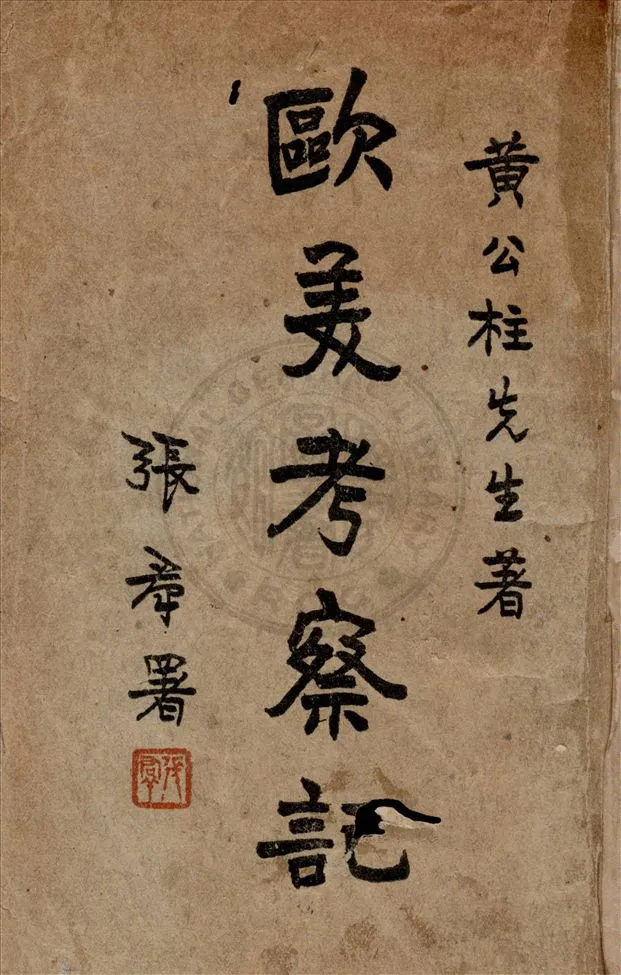 黃公柱先生著
歐美考察記
張羣署